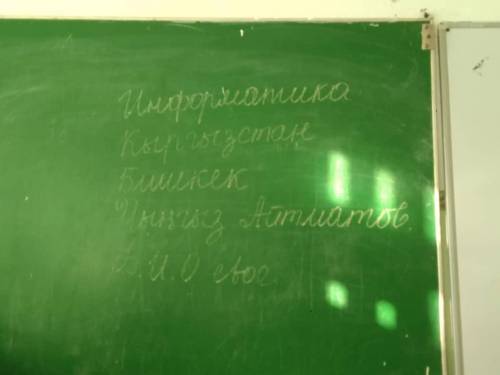 Информатика
Кыргызстан
Бишкек
Чынгыз Айтматов
Ф.И.О свое